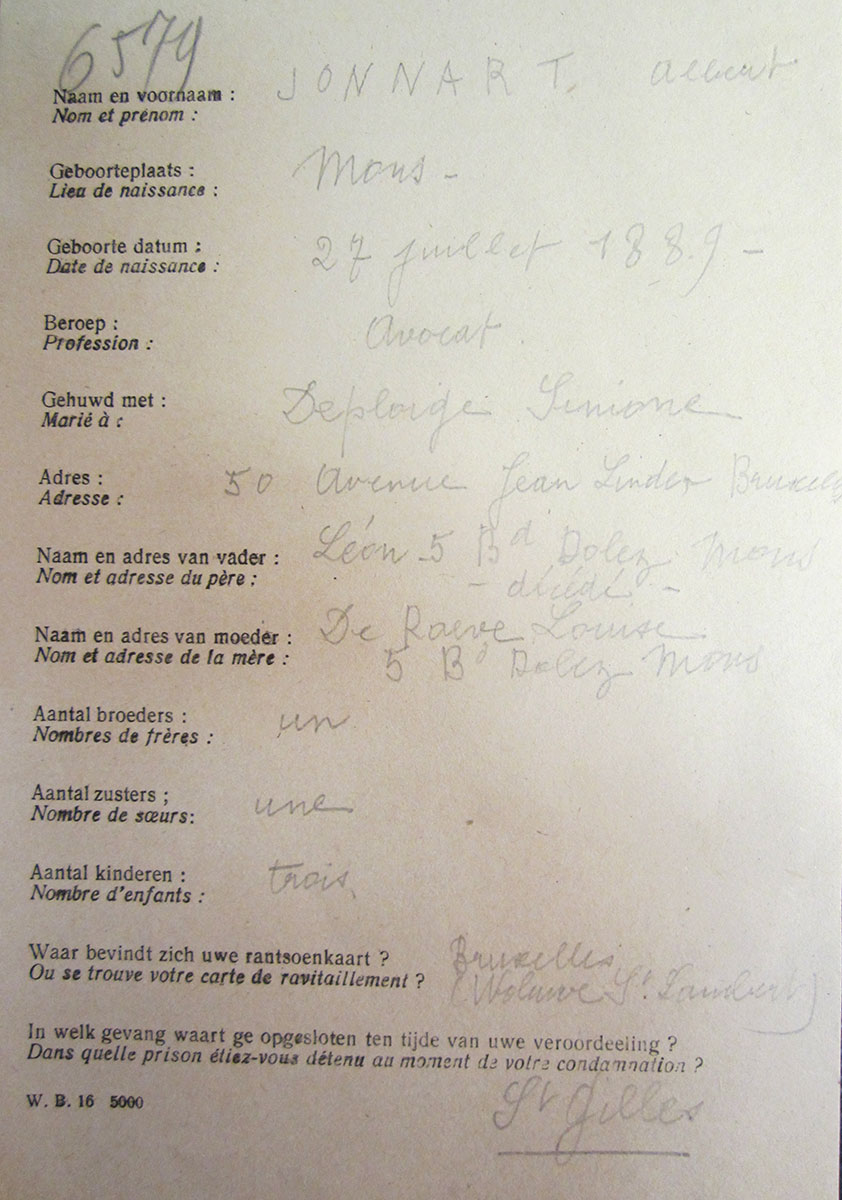 6579
Naam en voornaam : JONNART. Albert
Nom et prénom :
Geboorteplaats : Mons -
Lieu de naissance :
Geboorte datum : 27 juillet 1889 -
Date de naissance :
Beroep : Avocat.
Profession :
Gehuwd met : Deploige Simone
Marié à :
Adres : 50 Avenue Jean Linden Bruxelles
Adresse :
Naam en adres van vader : Léon 5 Bd Dolez Mons
Nom et adresse du père : - décédé -
Naam en adres van moeder : De Raeve Louise
Nom et adresse de la mère : 5 Bd Dolez Mons
Aantal broeders : un
Nombres de frères :
Aantal zusters ; une
Nombre de sœurs:
Aantal kinderen : trois
Nombre d'enfants :
Waar bevindt zich uwe rantsoenkaart ? Bruxelles
Ou se trouve votre carte de ravitaillement ? (Woluwe St. Lambert)
In welk gevang waart ge opgesloten ten tijde van uwe veroordeeling ?
Dans quelle prison étiez-vous détenu au moment de votre condamnation ?
W. B. 16 5000
St Gilles